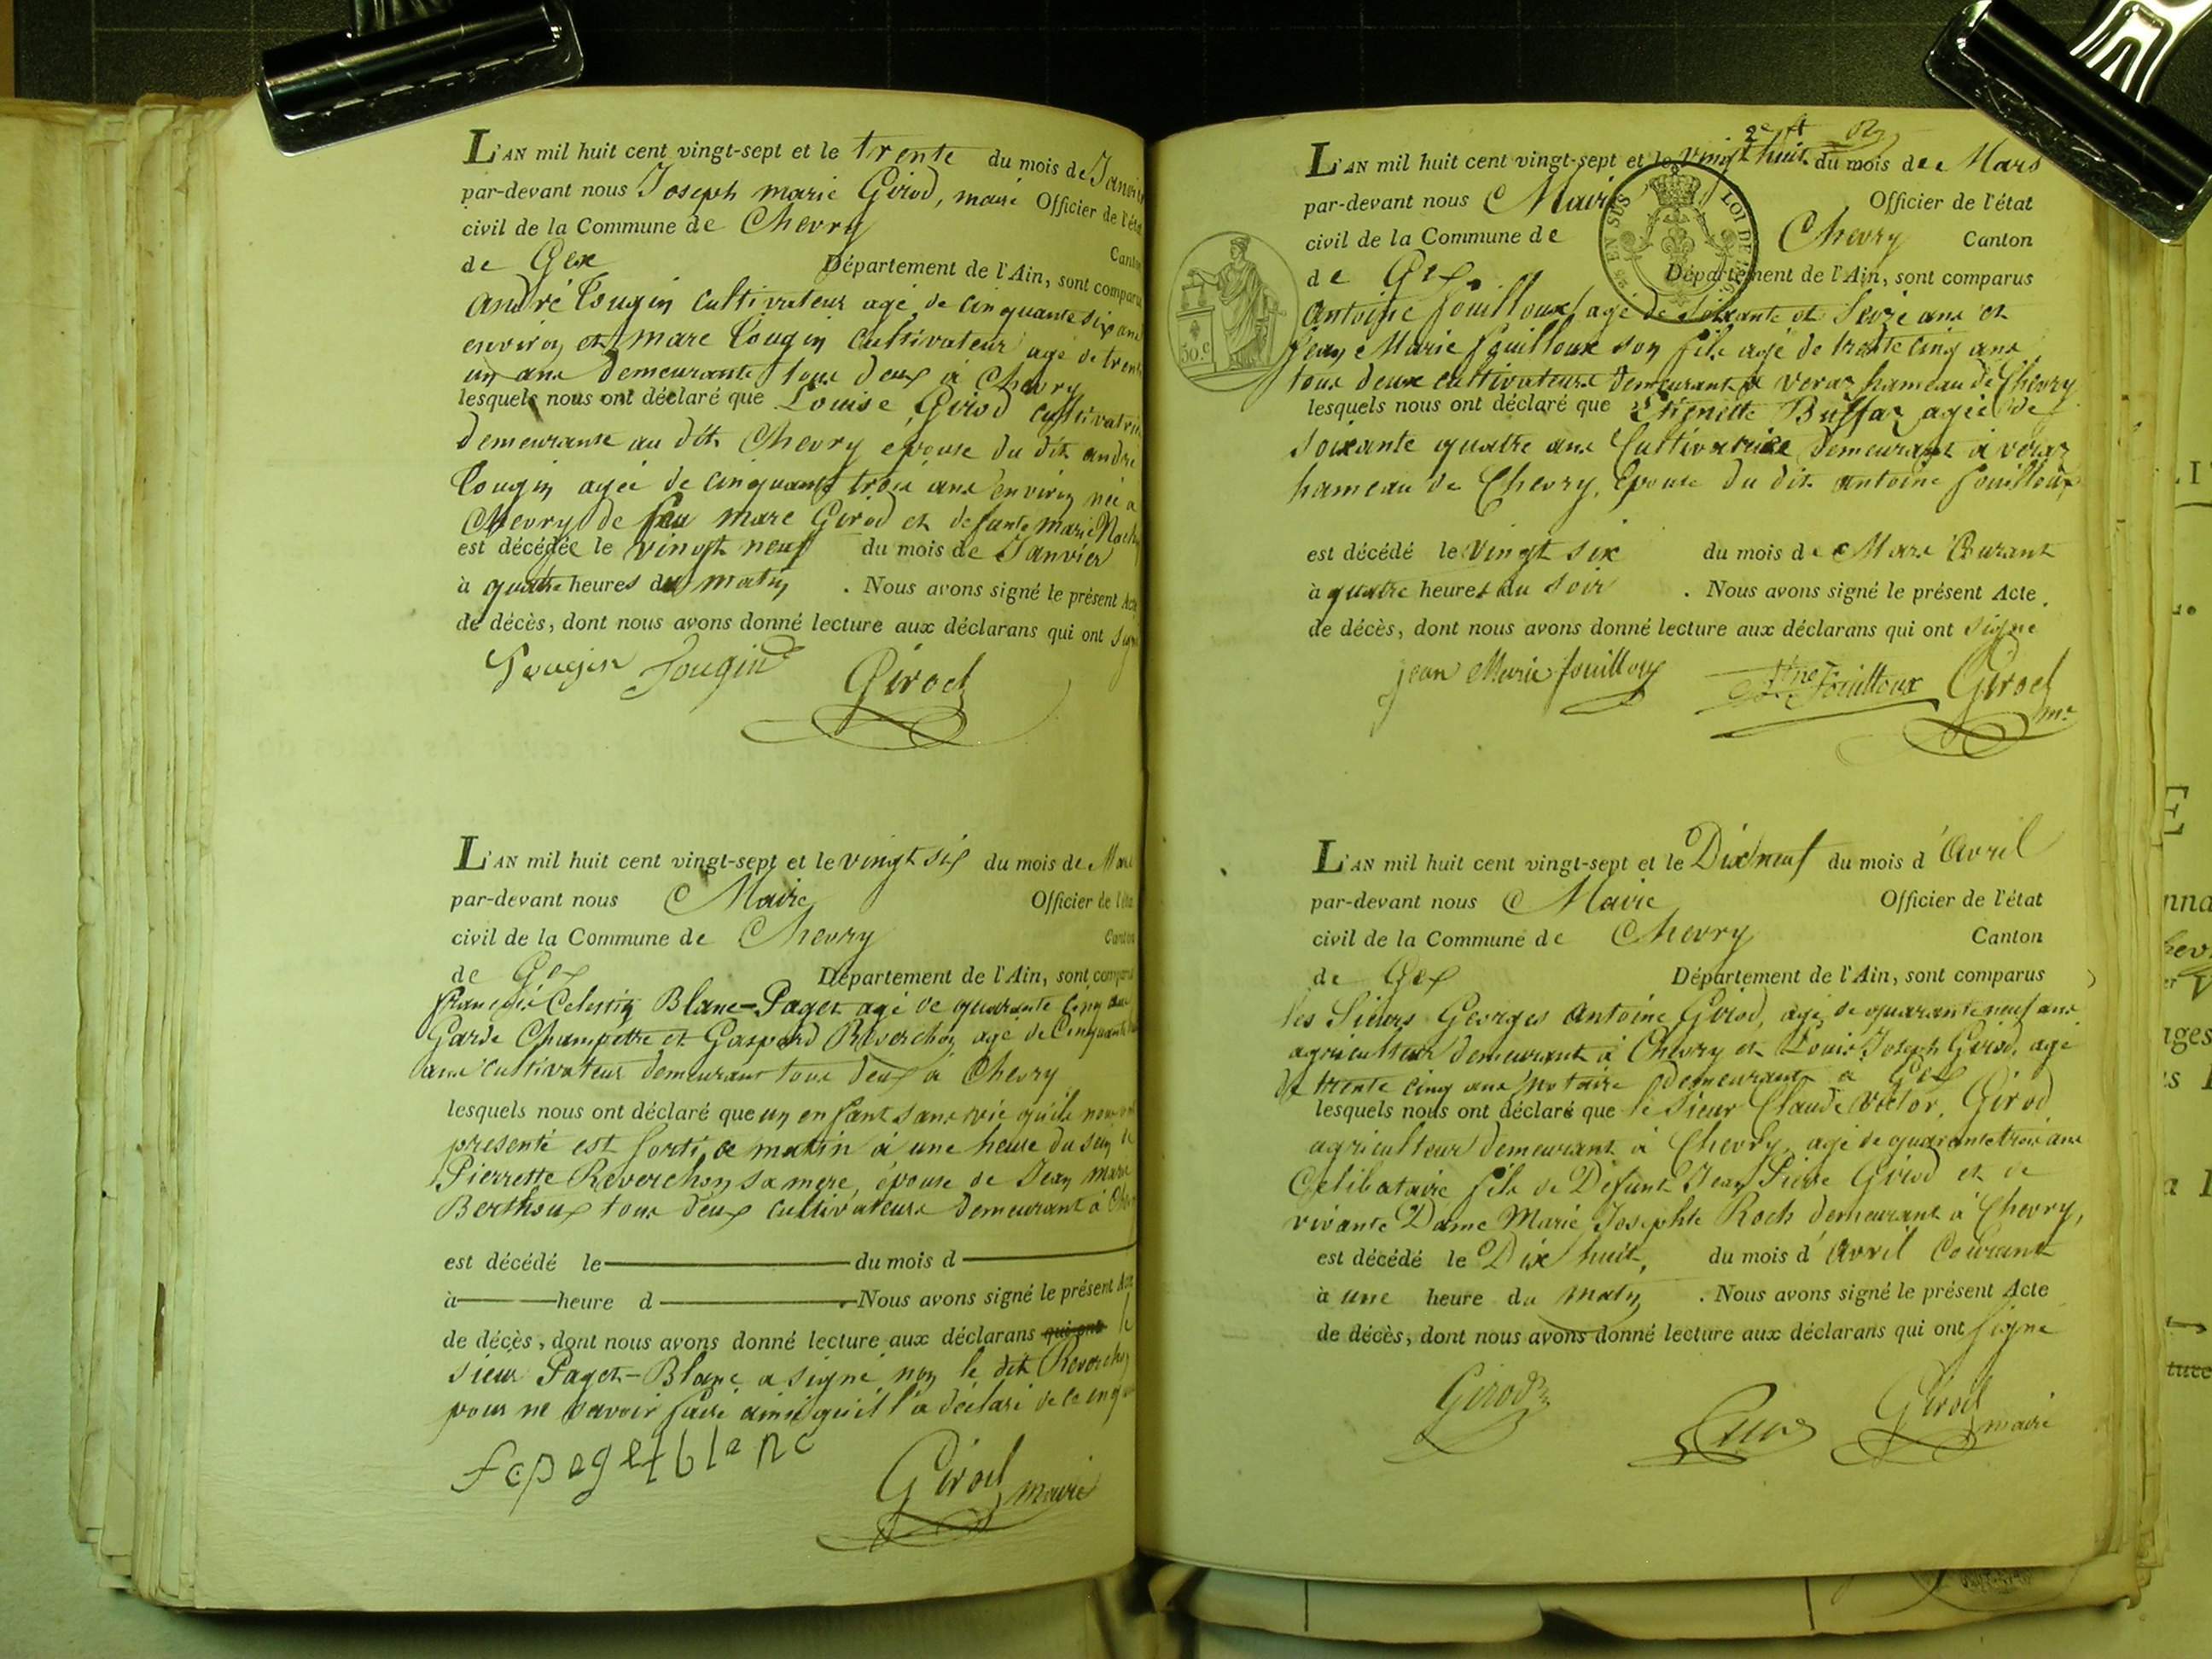 L'AN mil huit cent vingt-sept et le trente du mois de Janvier
par-devant nous Joseph marie Girod, maire Officier de l'état
civil de la Commune de Chevry
Canton
de Gex Département de l'Ain, sont comparus
André Cultivateur agé de cinquante six ans
environ et marc Cultivateur agé de trente
un ans demeurants tous deux à Chevry
lesquels nous ont déclaré que Louise Girod cultivatrice
demeurante au dit Chevry epouse du dit andré
agée de cinquante trois ans environ née a
Chevry de feu marc Girod et defunte marie
est décédée le vingt neuf du mois de Janvier
à quatre heures du matin . Nous avons signé le présent Acte
de décès, dont nous avons donné lecture aux déclarans qui ont signé
Girod
L'AN mil huit cent vingt-sept et le vingt six du mois de Mars
par-devant nous Maire Officier de l'état
civil de la Commune de Chevry Canton
de Gex Département de l'Ain, sont comparus
françois Celestin Blanc-Paget agé de quarante cinq ans
Garde Champetre et Gaspard Reverchon agé de Cinquante
ans cultivateur demeurant tous deux à Chevry
lesquels nous ont déclaré que un enfant sans vie qu'ils nous ont
presenté est sorti ce matin à une heure du sein de
Pierrette Reverchon sa mere, épouse de Jean marie
Berthoux tous deux cultivateurs demeurant à Chevry
est décédé le du mois d
à heure d . Nous avons signé le présent Acte
de décès, dont nous avons donné lecture aux déclarans qui ont le
sieur Paget-Blanc a signé non le dit Reverchon
pour ne savoir faire ainsi qu'il l'a déclaré de ce enquis
fcpagetblanc
Girod maire
2e ft
L'AN mil huit cent vingt-sept et le vingt huit du mois de Mars
par-devant nous Maire Officier de l'état
civil de la Commune de Chevry Canton
de Gex Département de l'Ain, sont comparus
EN SUS LOI DE
30.c
Antoine fouilloux agé de soixante et seize ans et
Jean Marie fouilloux son fils agé de trente cinq ans
tous deux cultivateurs demeurant à veraz hameau de Chevry
lesquels nous ont déclaré que Buffaz agée de
soixante quatre ans Cultivatrice demeurant à veraz
hameau de Chevry, Epouse du dit antoine fouilloux
est décédé le vingt six du mois de Mars Courant
à quatre heures du soir . Nous avons signé le présent Acte
de décès, dont nous avons donné lecture aux déclarans qui ont signé
jean Marie fouilloux fouilloux Girod
me
L'AN mil huit cent vingt-sept et le Dix neuf du mois d'Avril
par-devant nous Maire Officier de l'état
civil de la Commune de Chevry Canton
de Gex Département de l'Ain, sont comparus
les Sieurs Georges Antoine Girod, agé de quarante neuf ans
agriculteur demeurant à Chevry et Louis Joseph Girod, agé
de trente cinq ans Notaire demeurant a Gex
lesquels nous ont déclaré que le sieur Claude Victor Girod
agriculteur demeurant à Chevry, agé de quarante trois ans
Celibataire fils de Defunt Jean Pierre Girod et de
vivante Dame Marie Josephte Roch demeurant à Chevry,
est décédé le Dix huit, du mois d'Avril Courant
à une heure du matin . Nous avons signé le présent Acte
de décès, dont nous avons donné lecture aux déclarans qui ont signé
Girod Girod maire